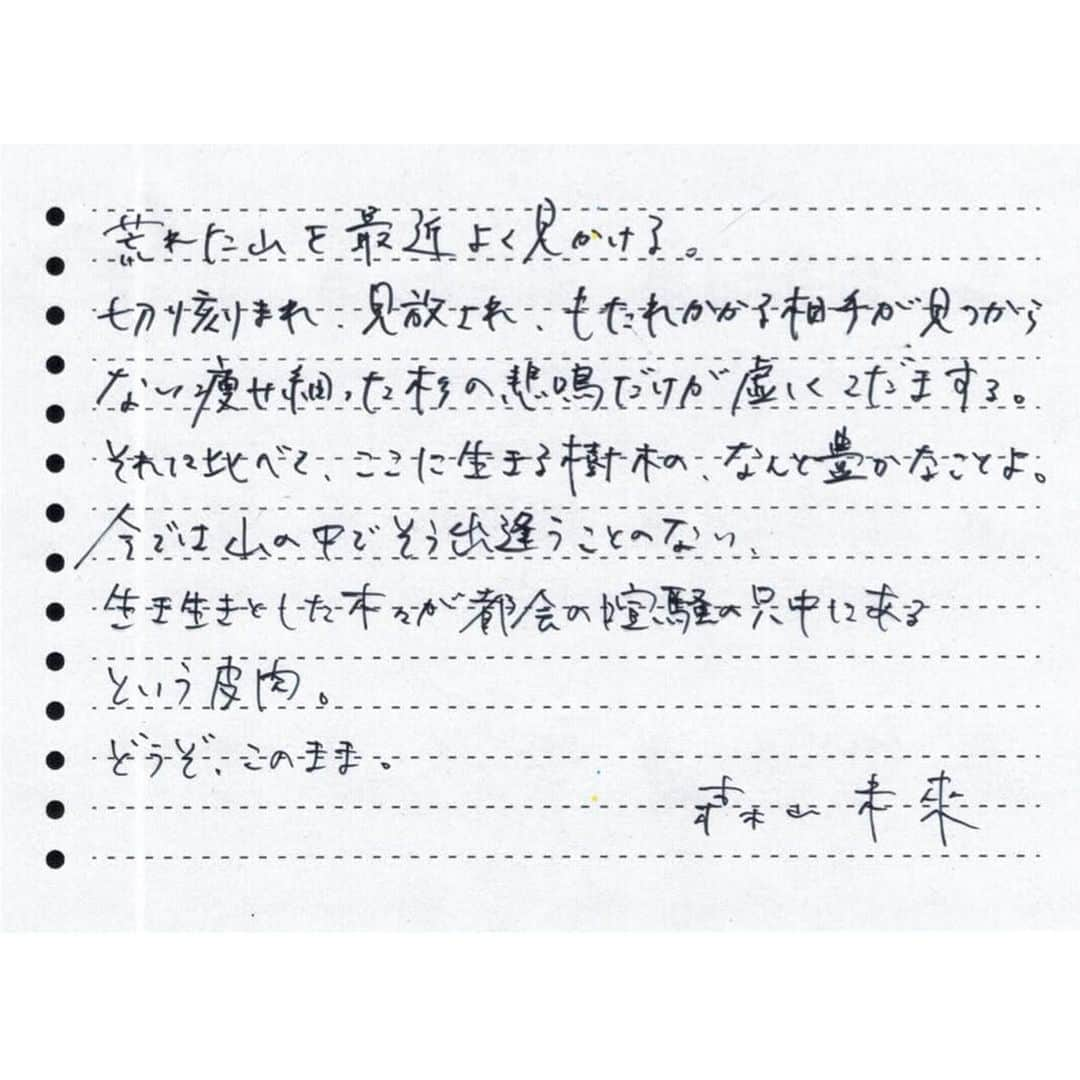 荒れた山を最近よく見かける。
切り刻まれ、見放され、もたれかかる相手が見つから
ない痩せ細った杉の悲鳴だけが虚しくこだまする。
それに比べて、ここに生きる樹木の、なんと豊かなことよ。
今では山の中でそう出逢うことのない、
生き生きとした木々が都会の喧騒の只中にある
という皮肉。
どうぞ、このまま。
森山未來